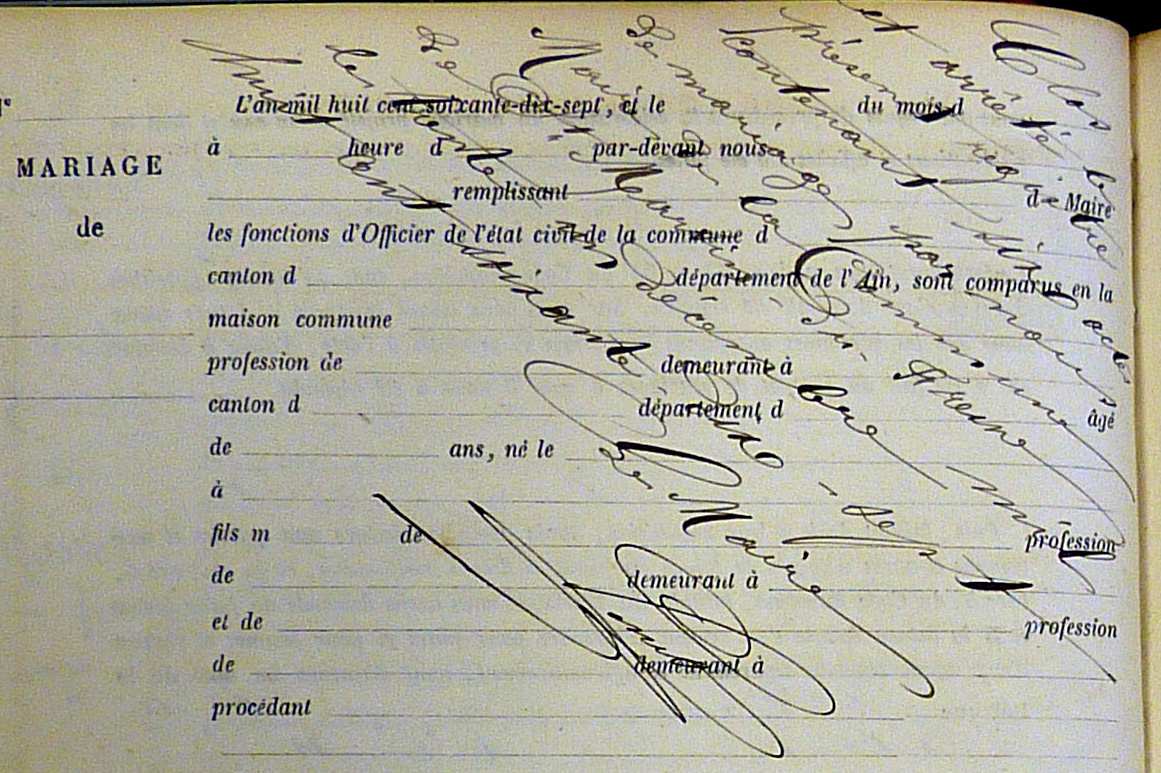 MARIAGE
de
L'an mil huit cent soixante-dix-sept, et le du mois d
à heure d par-devant nous
remplissant d Maire
les fonctions d'Officier de l'état civil de la commune d
canton d département de l'Ain, sont comparus en la
maison commune
profession de demeurant à
canton d département d âgé
de ans, né le
à
fils m de profession
de demeurant à
et de profession
de demeurant à
procédant
Clos
et arrêté le
présent registre
contenant dix actes
de mariage par nous
Maire de la Commune
de St Martin du Fresne
les trente un décembre mil
huit cent soixante dix-sept
Le Maire